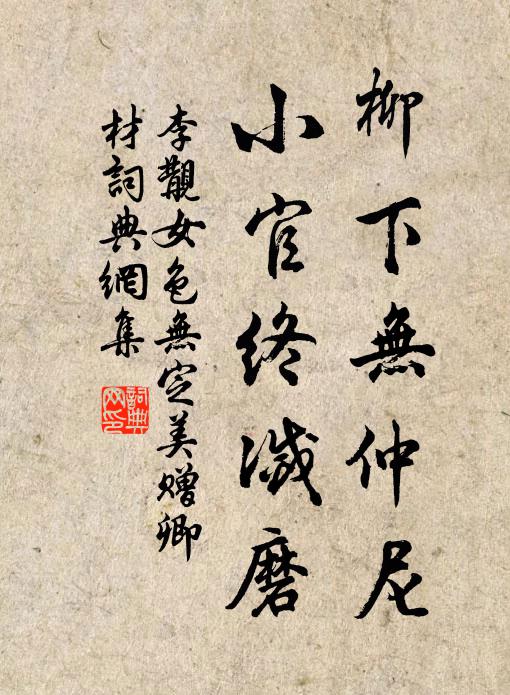 柳下無仲尼
小官終滅磨
李覯女色無定美贈卿
材詞典網集
詞典
网印